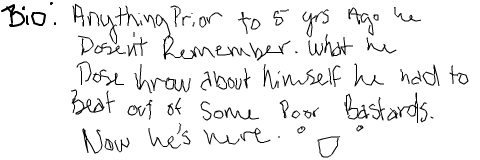 Bio: Anything Prior to 5 yrs Ago he
Dosen't Remember. What he
Dose know about himself he had to
beat out of Some Poor Bastards.
Now he's here.